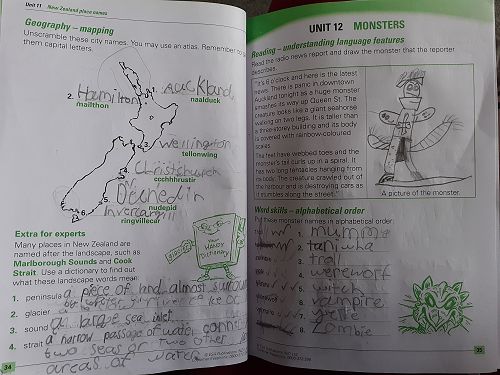 Unit 11 New Zealand place names
Geography – mapping
Unscramble these city names. You may use an atlas. Remember to
them capital letters.
1. Auckland
naalduck
2. Hamilton
mailthon
3. Wellington
tellonwing
4. Christchurch
cochhhrustir
5. Dunedin
nudenid
6. Invercargill
ringvillecar
Extra for experts
Many places in New Zealand are
named after the landscape, such as
Marlborough Sounds and Cook
Strait. Use a dictionary to find out
what these landscape words mean:
1. peninsula a piece of land almost
2. glacier
3. sound a large sea inlet
4. strait a narrow passage of water
two seas or two other
areas of water
HANDY
Dictionary
34
UNIT 12 MONSTERS
Reading – understanding language features
Read the radio news report and draw the monster that the reporter
describes.
It's 6 o'clock and here is the latest
news. There is panic in downtown
Auckland tonight as a huge monster
smashes its way up Queen St. The
creature looks like a giant seahorse
walking on two legs. It is taller than
a three-storey building and its body
is covered with rainbow-coloured
scales.
The feet have webbed toes and the
monster's tail curls up in a spiral. It
has two long tentacles hanging from
its body. The creature crawled out of
the harbour and is destroying cars as
it stumbles along the street.
A picture of the monster.
Word skills – alphabetical order
Put these monster names in alphabetical order:
1. mummy
2. taniwha
3. troll
4. werewolf
5. witch
6. vampire
7. yetie
8. Zombie
35